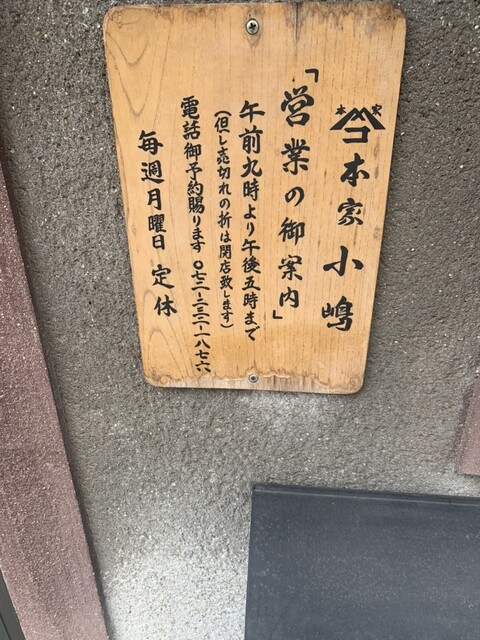 本家
コ本家小嶋
「営業の御案内」
午前九時より午後五時まで
(但し売切れの折は閉店致します)
電話御予約賜ります 〇七二-二三二-一八七六
毎週月曜日 定休